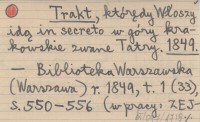 Trakt, którędy Włoszy
idą in secreto w góry kra-
kowskie zwane Tatry. 1849.
— Biblioteka Warszawska
(Warszawa), r. 1849, t. 1 (33),
s. 550–556 (w pracy: ZEJ-